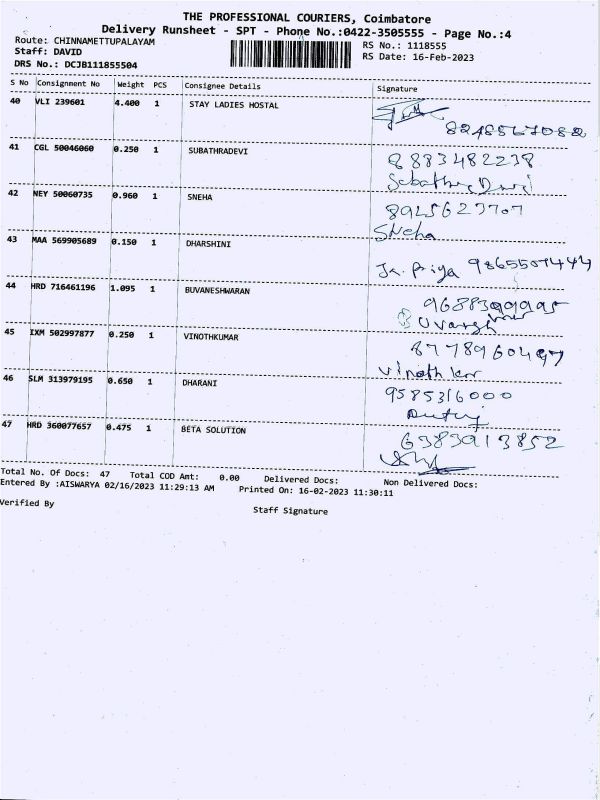 THE PROFESSIONAL COURIERS, Coimbatore
Delivery Runsheet - SPT - Phone No.:0422-3505555 - Page No.:4
Route: CHINNAMETTUPALAYAM
Staff: DAVID
DRS No.: DCJB111855504
RS No.: 1118555
RS Date: 16-Feb-2023
S No Consignment No Weight PCS Consignee Details Signature
40 VLI 239601 4.400 1 STAY LADIES HOSTAL
41 CGL 50046060 0.250 1 SUBATHRADEVI 8883482238
Subathra Devi
42 NEY 50060735 0.960 1 SNEHA 8925623707
Sneha
43 MAA 569905689 0.150 1 DHARSHINI
Priya
44 HRD 716461196 1.095 1 BUVANESHWARAN
45 IXM 502997877 0.250 1 VINOTHKUMAR 8778960497
46 SLM 313979195 0.650 1 DHARANI 9585316000
47 HRD 360077657 0.475 1 BETA SOLUTION 6383913852
Total No. Of Docs: 47 Total COD Amt: 0.00 Delivered Docs: Non Delivered Docs:
Entered By :AISWARYA 02/16/2023 11:29:13 AM Printed On: 16-02-2023 11:30:11
Verified By
Staff Signature